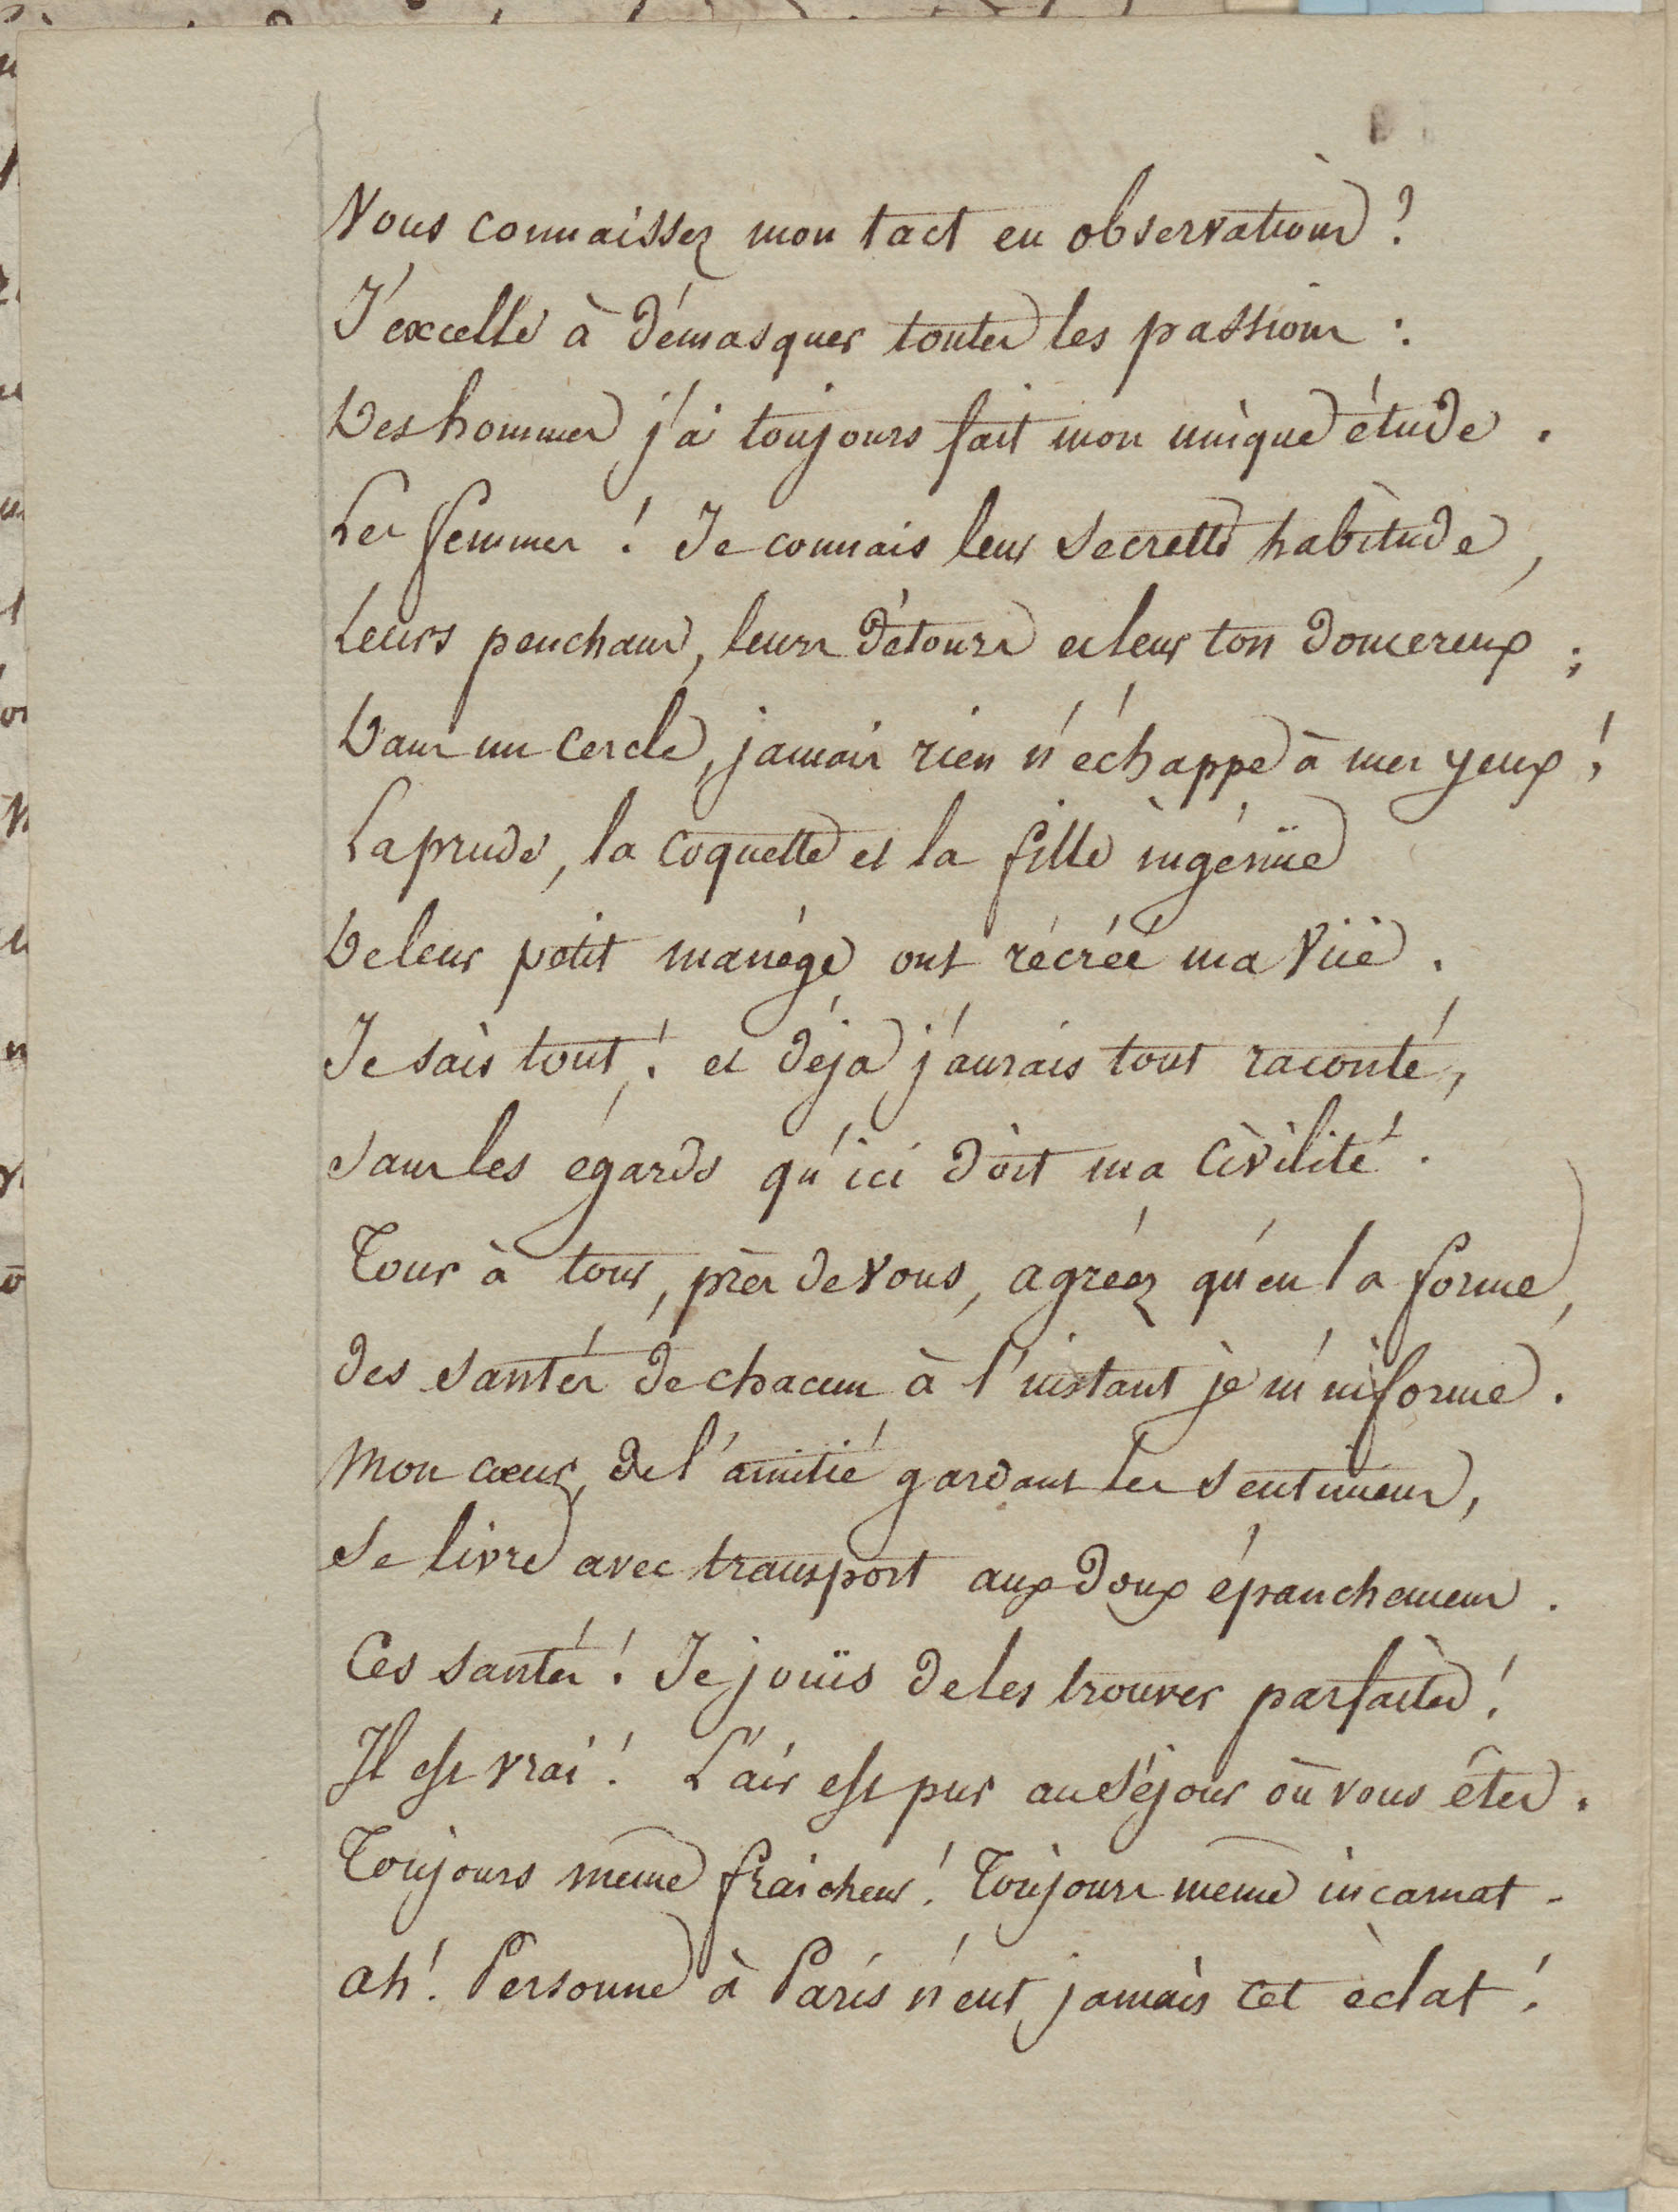 Vous connaissez mon tact en observations?
J'excelle à démasquer toutes les passions :
Des hommes j'ai toujours fait mon unique étude.
Les femmes ! Je connais leur secrette habitude,
Leurs penchans, leurs détours et leur ton doucereux ;
Dans un cercle, jamais rien n'échappe à mes yeux !
La prude, la coquette et la fille ingénüe
De leur petit manége ont récréé ma vüe.
Je sais tout ! et déja j'aurais tout raconté,
sans les égards qu'ici doit ma civilité.
Tour à tour, près de vous, agréez qu'en la forme,
des santés de chacun à l'instant je m'informe.
Mon cœur, de l'amitié gardant les sentimens,
se livre avec transport aux doux épanchemens.
Ces santés ! Je jouïs de les trouver parfaites !
Il est vrai ! L'air est pur au séjour où vous étes.
Toujours meme fraicheur ! Toujours meme incarnat.
ah ! Personne à Paris n'eut jamais cet éclat !